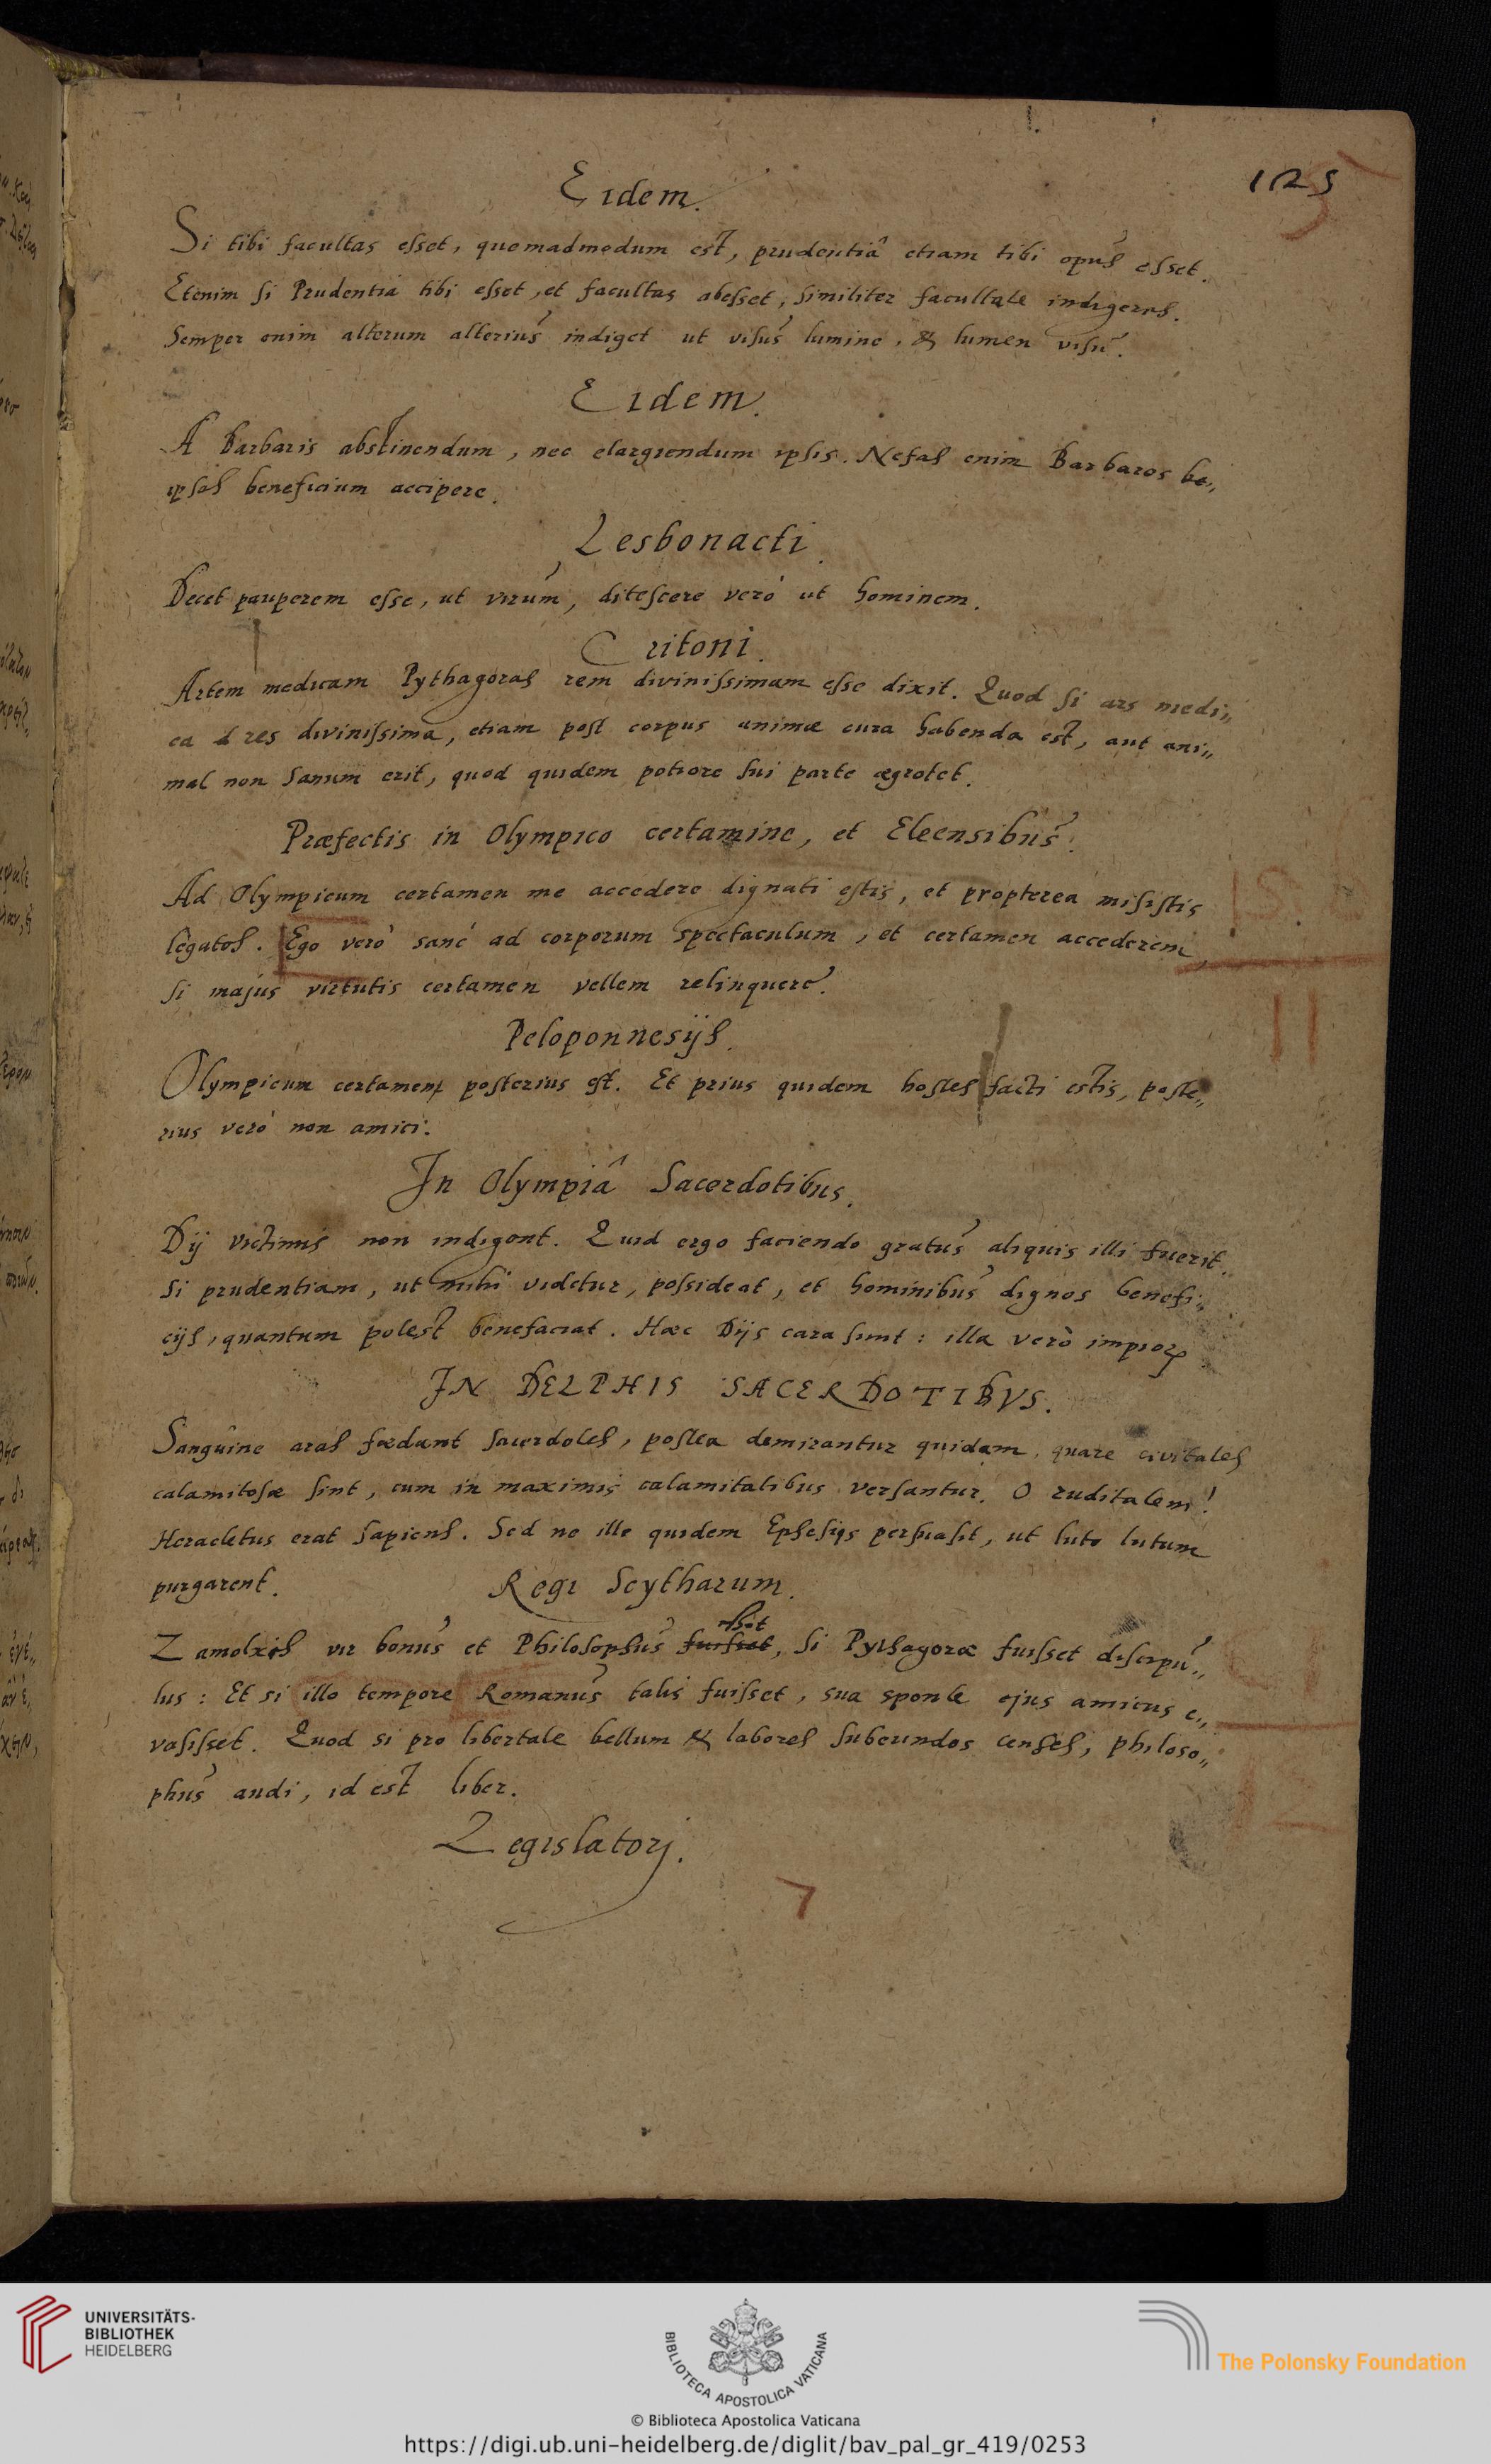 125
Eidem.
Si tibi facultas esset, quemadmodum est, prudentiâ etiam tibi opus esset.
Etenim si Prudentia tibi esset, et facultas abesset, similiter facultate indigeres.
Semper enim alterum alterius indiget ut visus lumine, & lumen visu.
Eidem.
A Barbaris abstinendum, nec elargiendum ipsis. Nefas enim Barbaros
ipsos beneficium accipere.
Lesbonacti.
Decet pauperem esse, ut virum, ditescere verò ut hominem.
Critoni.
Artem medicam Pythagoras rem divinissimam esse dixit. Quod si ars medi„
ca res divinissima, etiam post corpus animæ cura habenda est, aut ani„
mal non sanum erit, quod quidem potiore sui parte ægrotet.
Præfectis in Olympico certamine, et Eleensibus.
Ad Olympicum certamen me accedere dignati estis, et propterea misistis
legatos. Ego verò sanè ad corporum spectaculum, et certamen accederem,
si majus virtutis certamen vellem relinquere.
Peloponnesijs.
Olympicum certamen posterius est. Et prius quidem hostes facti estis, poste„
rius verò non amici.
In Olympiâ Sacerdotibus.
Dij victimis non indigent. Quid ergo faciendo gratus aliquis illi fuerit„
Si prudentiam, ut mihi videtur, possideat, et hominibus dignos benefi„
cijs, quantum potest benefaciat. Hæc Dijs cara sunt: illa verò
IN DELPHIS SACERDOTIBVS.
Sanguine aras fœdant sacerdotes, postea demirantur quidam, quare civitates
calamitosæ sint, cum in maximis calamitatibus versantur. O ruditatem!
Heracletus erat sapiens. Sed ne ille quidem Ephesijs persuasit, ut luto lutum
purgarent.
Regi Scytharum.
Zamolxis vir bonus et Philosophus fuisset, si Pythagoræ fuisset discipu„
lus: Et si illo tempore Romanus talis fuisset, sua sponte ejus amicus e„
vasisset. Quod si pro libertate bellum & labores subeundos censes, philoso„
phus audi, id est liber.
Legislatorj.
7
UNIVERSITÄTS-
BIBLIOTHEK
HEIDELBERG
BIBLIOTECA APOSTOLICA VATICANA
© Biblioteca Apostolica Vaticana
The Polonsky Foundation
https://digi.ub.uni-heidelberg.de/diglit/bav_pal_gr_419/0253